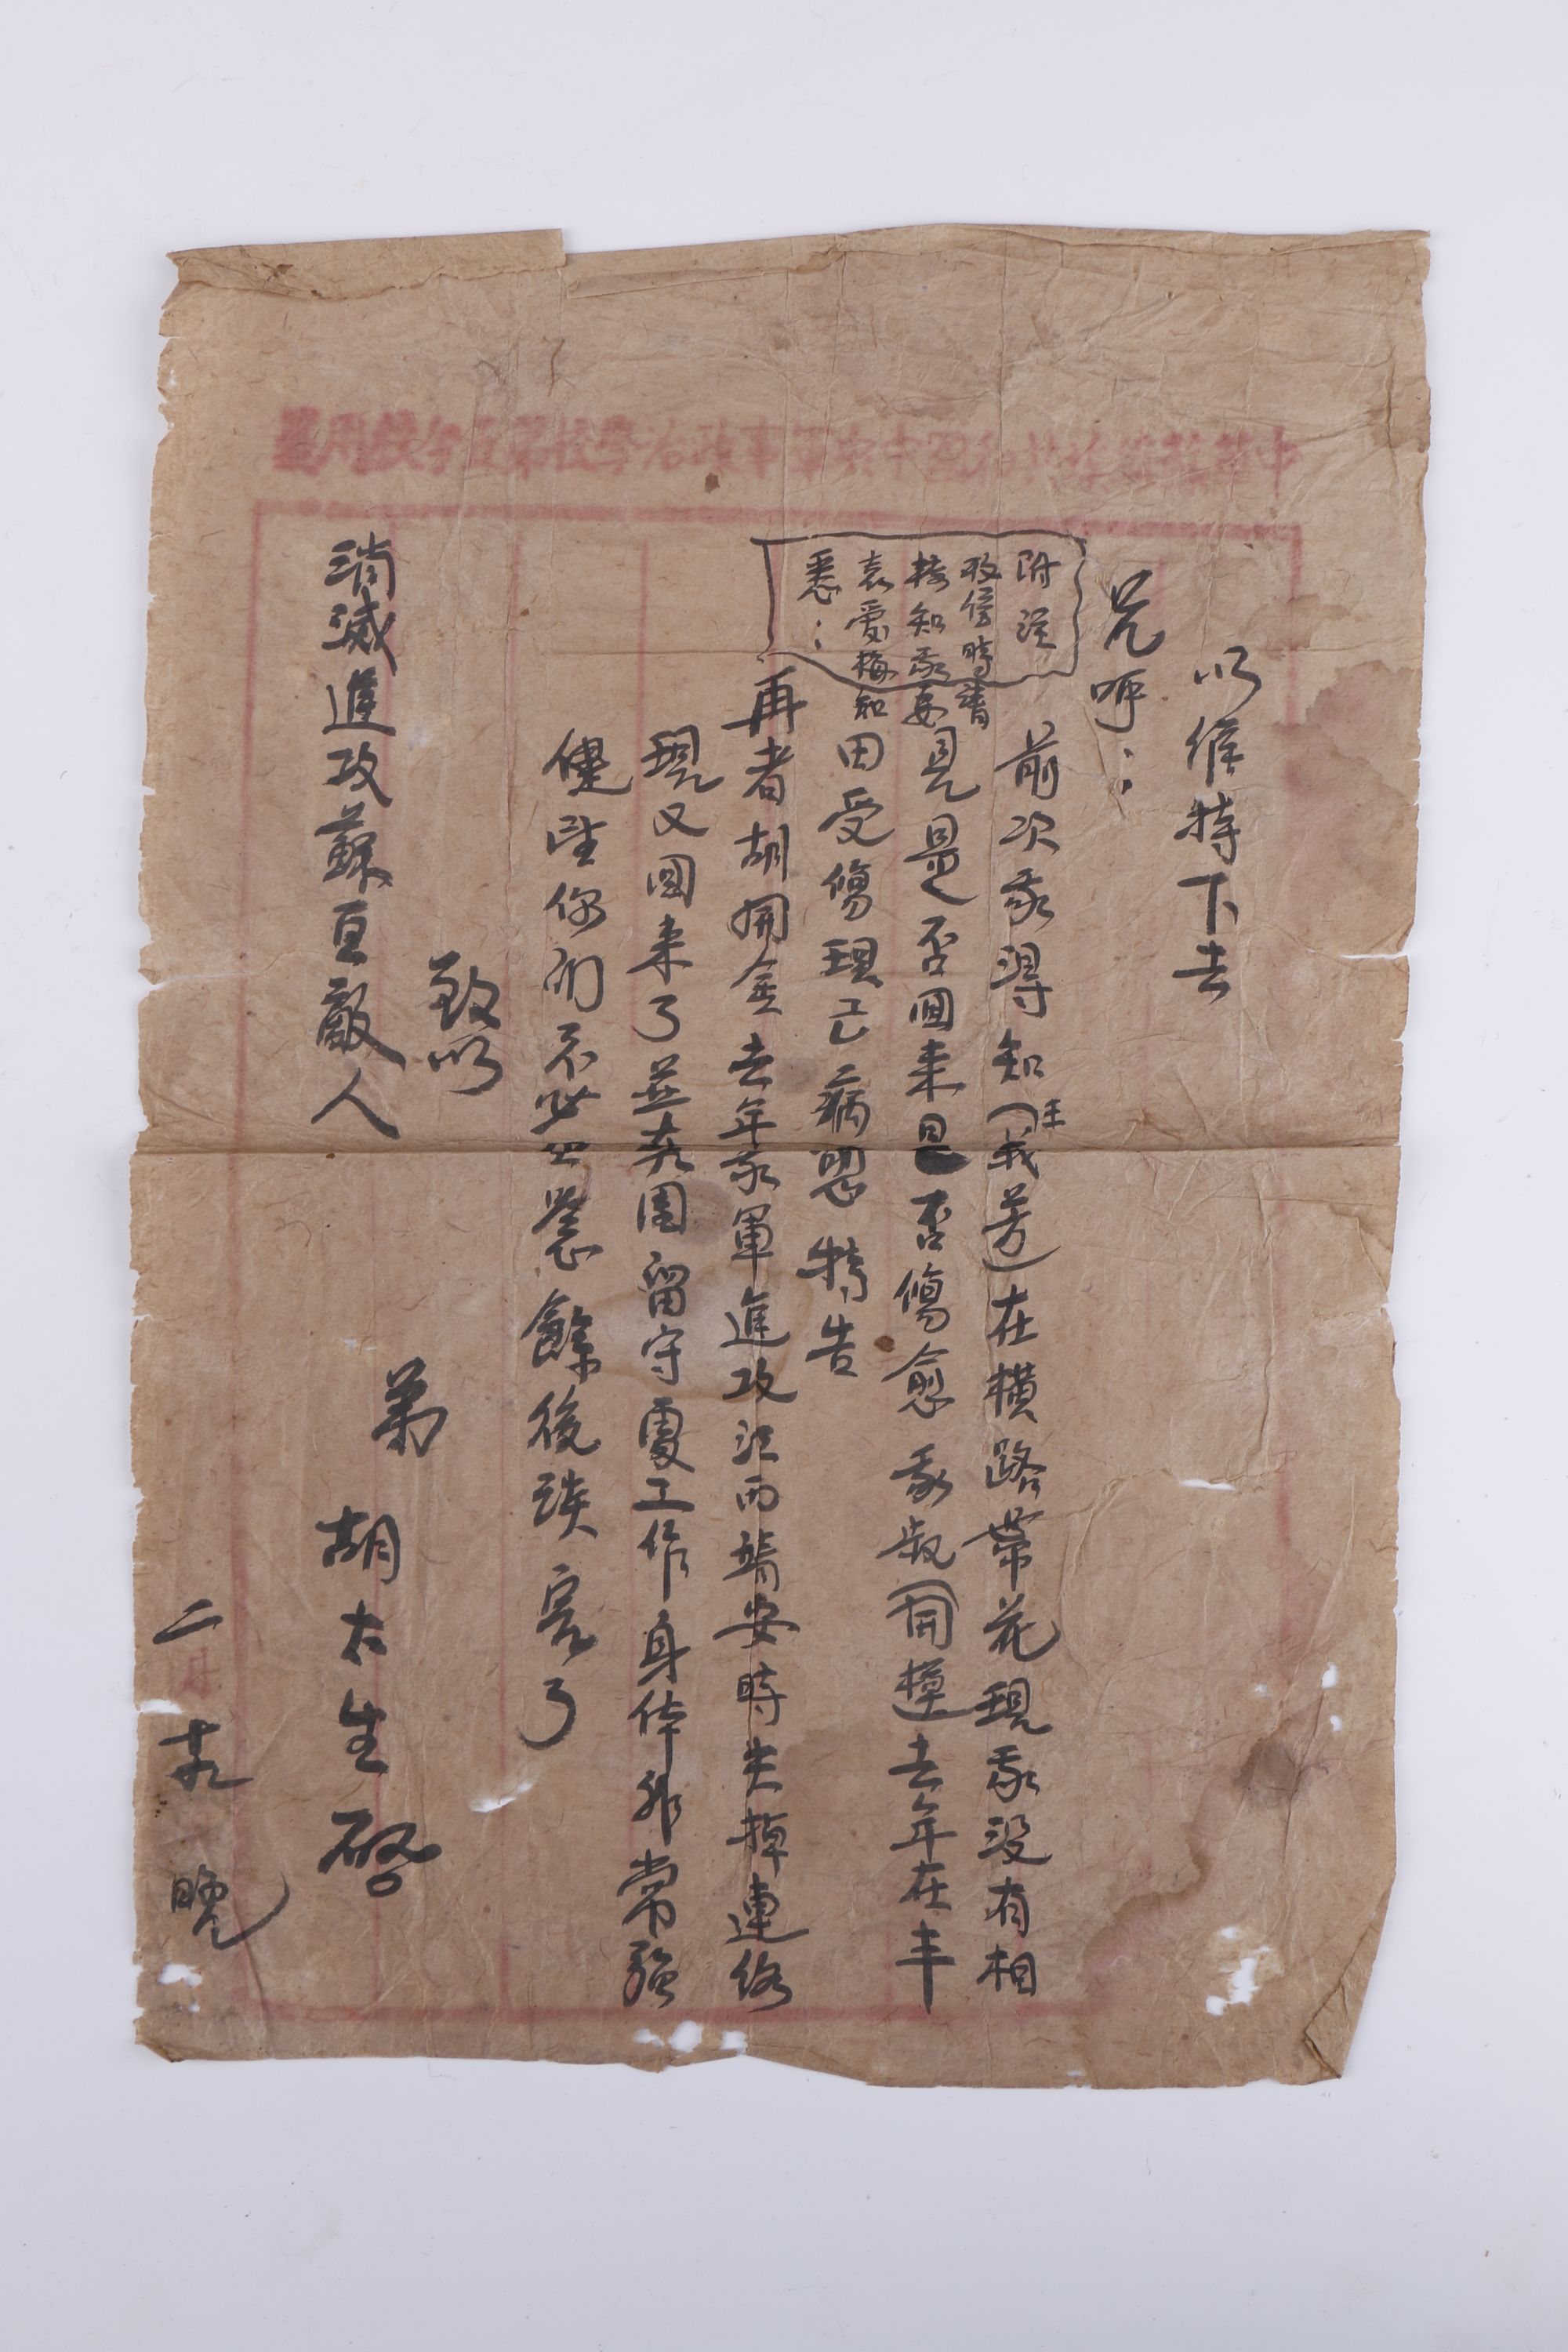 中華蘇維埃共和國中央軍事政治學校第五分校用箋
以維持下去
兄呼：
前次我得知王義芳在橫路帶花現我沒有相
見是否回来是否傷愈我叔開樟去年在丰
田受傷現已病愈特告
再者胡開金去年我軍進攻江西靖安時失掉連絡
現又回来了並在團留守處工作身体非常強
健望你们不必掛慮餘後談完了
致以
消滅進攻蘇区敵人
弟
胡太生啓
二月十九晚
附
收信時書
接知我要
袁愛梅知
悉：